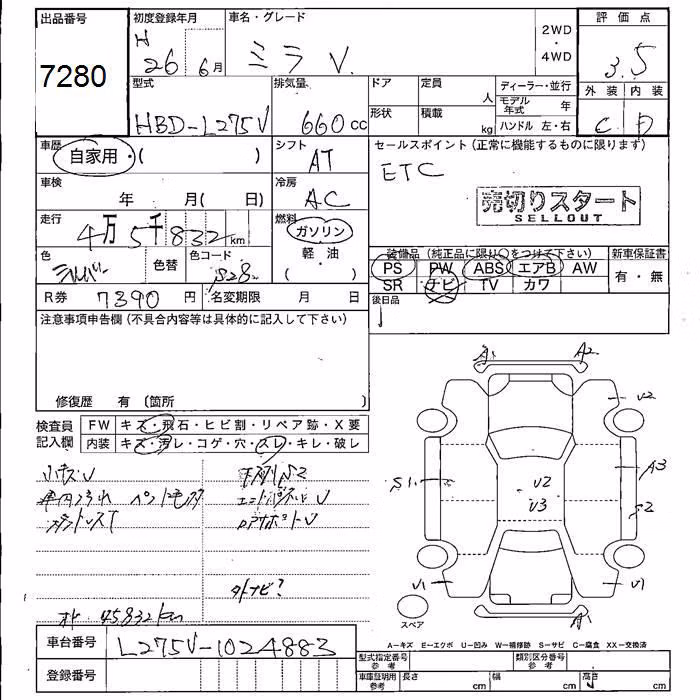 出品番号 初度登録年月 車名・グレード 2WD・4WD 評価点
7280 H 26 6月 ミラ V 3.5
型式 排気量 ドア 定員 人 ディーラー・並行 外装 内装
HBD-L275V 660cc 形状 積載 kg モデル年式 年 ハンドル 左・右 C D
車歴 自家用・( ) シフト AT セールスポイント (正常に機能するものに限ります)
ETC
車検 年 月( 日) 冷房 AC
売切りスタート
SELLOUT
走行 4万5千832km 燃料 ガソリン 軽・油 ( )
色 シルバー 色替 色コード S28
装備品 (純正品に限り○をつけて下さい) 新車保証書
PS PW ABS エアB AW 有・無
SR ナビ TV カワ
R券 7390円 名変期限 月 日 後日品
注意事項申告欄 (不具合内容等は具体的に記入して下さい)
修復歴 有 (箇所 )
検査員記入欄 FW キズ・飛石・ヒビ割・リペア跡・X要
内装 キズ・汚レ・コゲ・穴・スレ・キレ・破レ
A1 A2
V2
A3
S1 V2 S2
V3
V1 V1
A1
小キズV
外ナビ?
スペア
45832km
A−キズ E−エクボ U−凹み W−補修跡 S−サビ C−腐食 XX−交換済
車台番号 L275V-1024883
型式指定番号 参考 類別区分番号 参考
登録番号 車庫証明用 参考 長さ cm 幅 cm 高さ cm